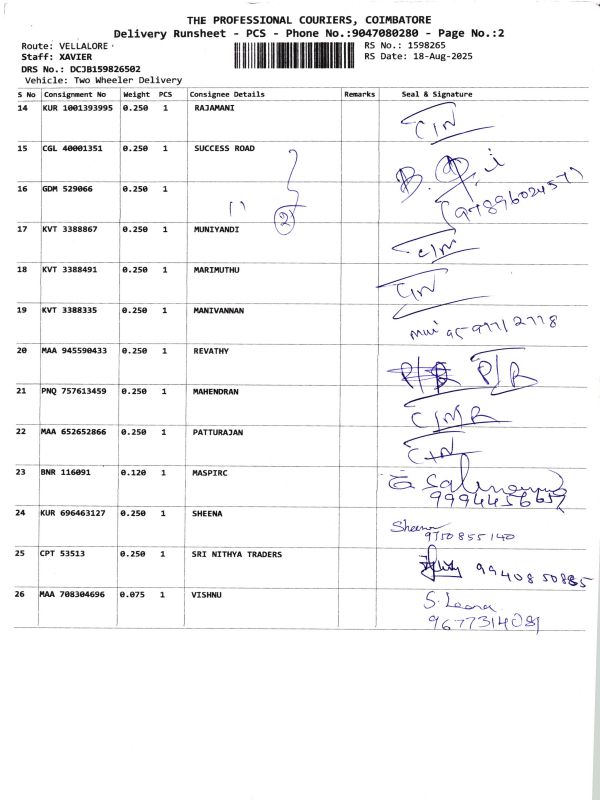 THE PROFESSIONAL COURIERS, COIMBATORE
Delivery Runsheet - PCS - Phone No.:9047080280 - Page No.:2
Route: VELLALORE
RS No.: 1598265
Staff: XAVIER
RS Date: 18-Aug-2025
DRS No.: DCJB159826502
Vehicle: Two Wheeler Delivery
S No Consignment No Weight PCS Consignee Details Remarks Seal & Signature
14 KUR 1001393995 0.250 1 RAJAMANI
15 CGL 40001351 0.250 1 SUCCESS ROAD
16 GDM 529066 0.250 1 11 2
17 KVT 3388867 0.250 1 MUNIYANDI
18 KVT 3388491 0.250 1 MARIMUTHU
19 KVT 3388335 0.250 1 MANIVANNAN
20 MAA 945590433 0.250 1 REVATHY P/R
21 PNQ 757613459 0.250 1 MAHENDRAN
22 MAA 652652866 0.250 1 PATTURAJAN
23 BNR 116091 0.120 1 MASPIRC
24 KUR 696463127 0.250 1 SHEENA Sheena
9750855140
25 CPT 53513 0.250 1 SRI NITHYA TRADERS
26 MAA 708304696 0.075 1 VISHNU S. Leena
9677314081